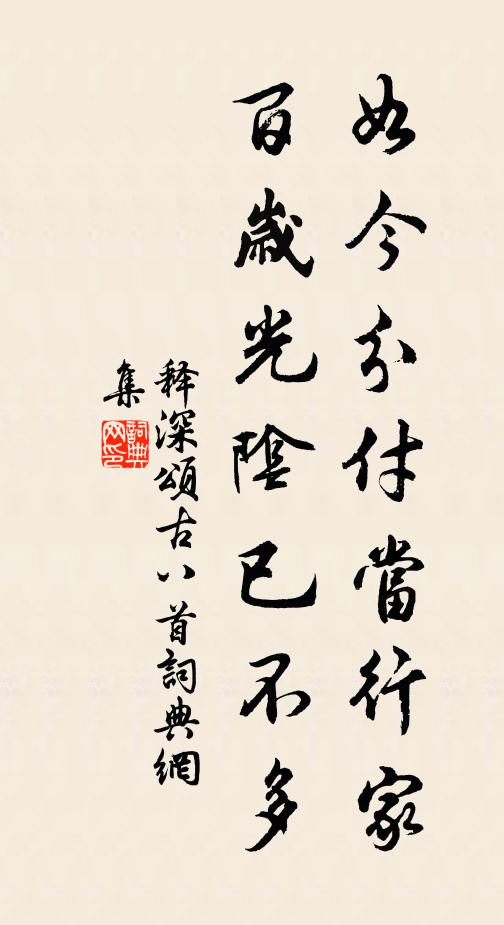 如今分付當行家
百歲光陰已不多
释深頌古八首詞典網
集
詞典網印